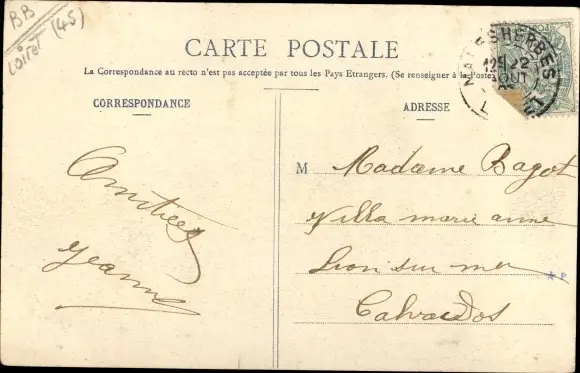 BB
Loiret (45)
CARTE POSTALE
La Correspondance au recto n'est pas acceptée par tous les Pays Etrangers. (Se renseigner à la Poste)
MALESHERBES
22
AOUT
CORRESPONDANCE
ADRESSE
Amitiés
Jeanne
M Madame Bagot
Villa marie anne
Lion sur mer
Calvados